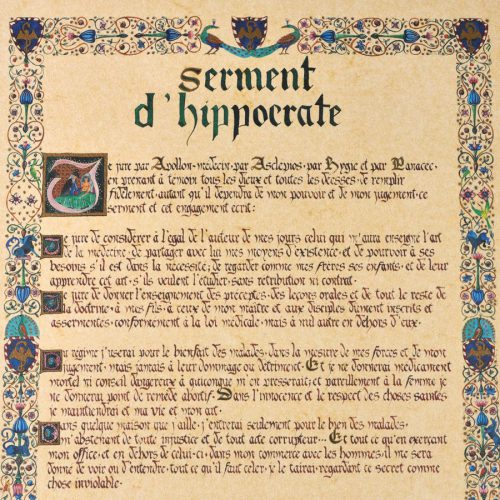 serment
d'hippocrate
Je jure par Apollon·medecin·par Asclepios·par Hygie et par Panacee·
en prenant à temoin tous les dieux et toutes les deesses·de remplir
fidèlement·autant qu'il dependra de mon pouvoir et de mon jugement·ce
serment et cet engagement ecrit:
Je jure de considérer à l'egal de l'auteur de mes jours celui qui m'aura enseigne l'art
de la medecine·de partager avec lui mes moyens d'existence·et de pouvoir à ses
besoins s'il est dans la necessite·de regarder comme mes frères ses enfants·et de leur
apprendre cet art·s'ils veulent l'etudier·sans retribution ni contrat·
Je jure de donner l'enseignement des preceptes·des leçons orales et de tout le reste de
la doctrine·à mes fils·à ceux de mon maître et aux disciples dûment inscrits et
assermentes·conformement à la loi medicale·mais à nul autre en dehors d'eux·
Du regime j'userai pour le bienfait des malades·dans la mesure de mes forces et de mon
jugement·mais jamais à leur dommage ou detriment· Et je ne donnerai medicament
mortel ni conseil dangereux à quiconque m'en presserait·et pareillement à la femme je
ne donnerai point de remède abortif· Dans l'innocence et le respect des choses saintes·
je maintiendrai et ma vie et mon art·
Dans quelque maison que j'aille·j'entrerai seulement pour le bien des malades·
m'abstenant de toute injustice et de tout acte corrupteur·· Et tout ce qu'en exerçant
mon office·et en dehors de celui-ci·dans mon commerce avec les hommes·il me sera
donne de voir ou d'entendre·tout ce qu'il faut celer·je le tairai·regardant ce secret comme
chose inviolable·